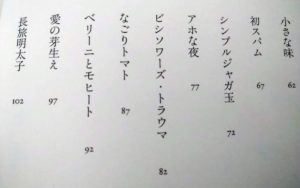 小さな味 62
初スパム 67
シンプルジャガ玉 72
アホな夜 77
ビシソワーズ・トラウマ 82
なごりトマト 87
ベリーニとモヒート 92
愛の芽生え 97
長旅明太子 102